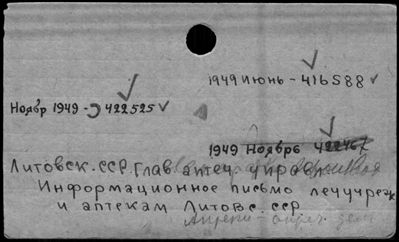 1949 Июнь - 416588
Ноябр 1949 - 422525
1949 Ноябрь 42246
Литовск. сср. Глав аптеч управ
Информационное письмо лечучреж
и аптекам Литовс. сср.